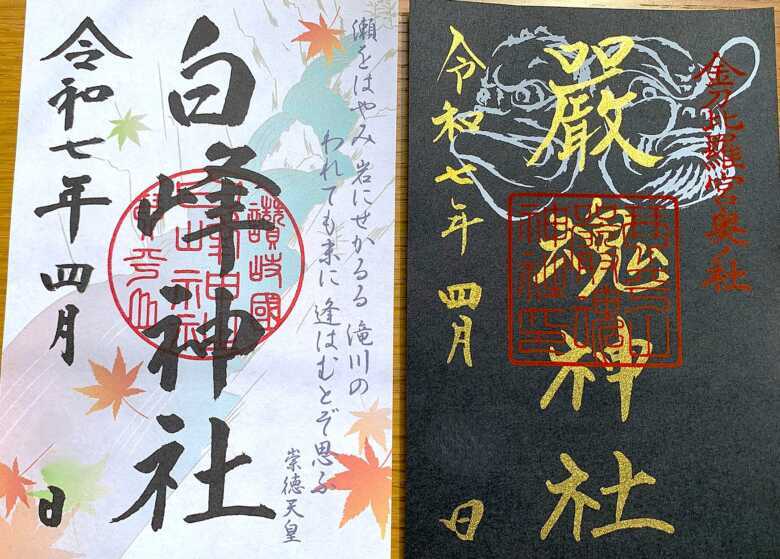 瀬をはやみ 岩にせかるる 滝川の
われても末に 逢はむとぞ思ふ
崇徳天皇
白峰神社
令和七年 四月 日
讃岐國
金刀比羅宮奥社
嚴魂神社
令和七年 四月 日